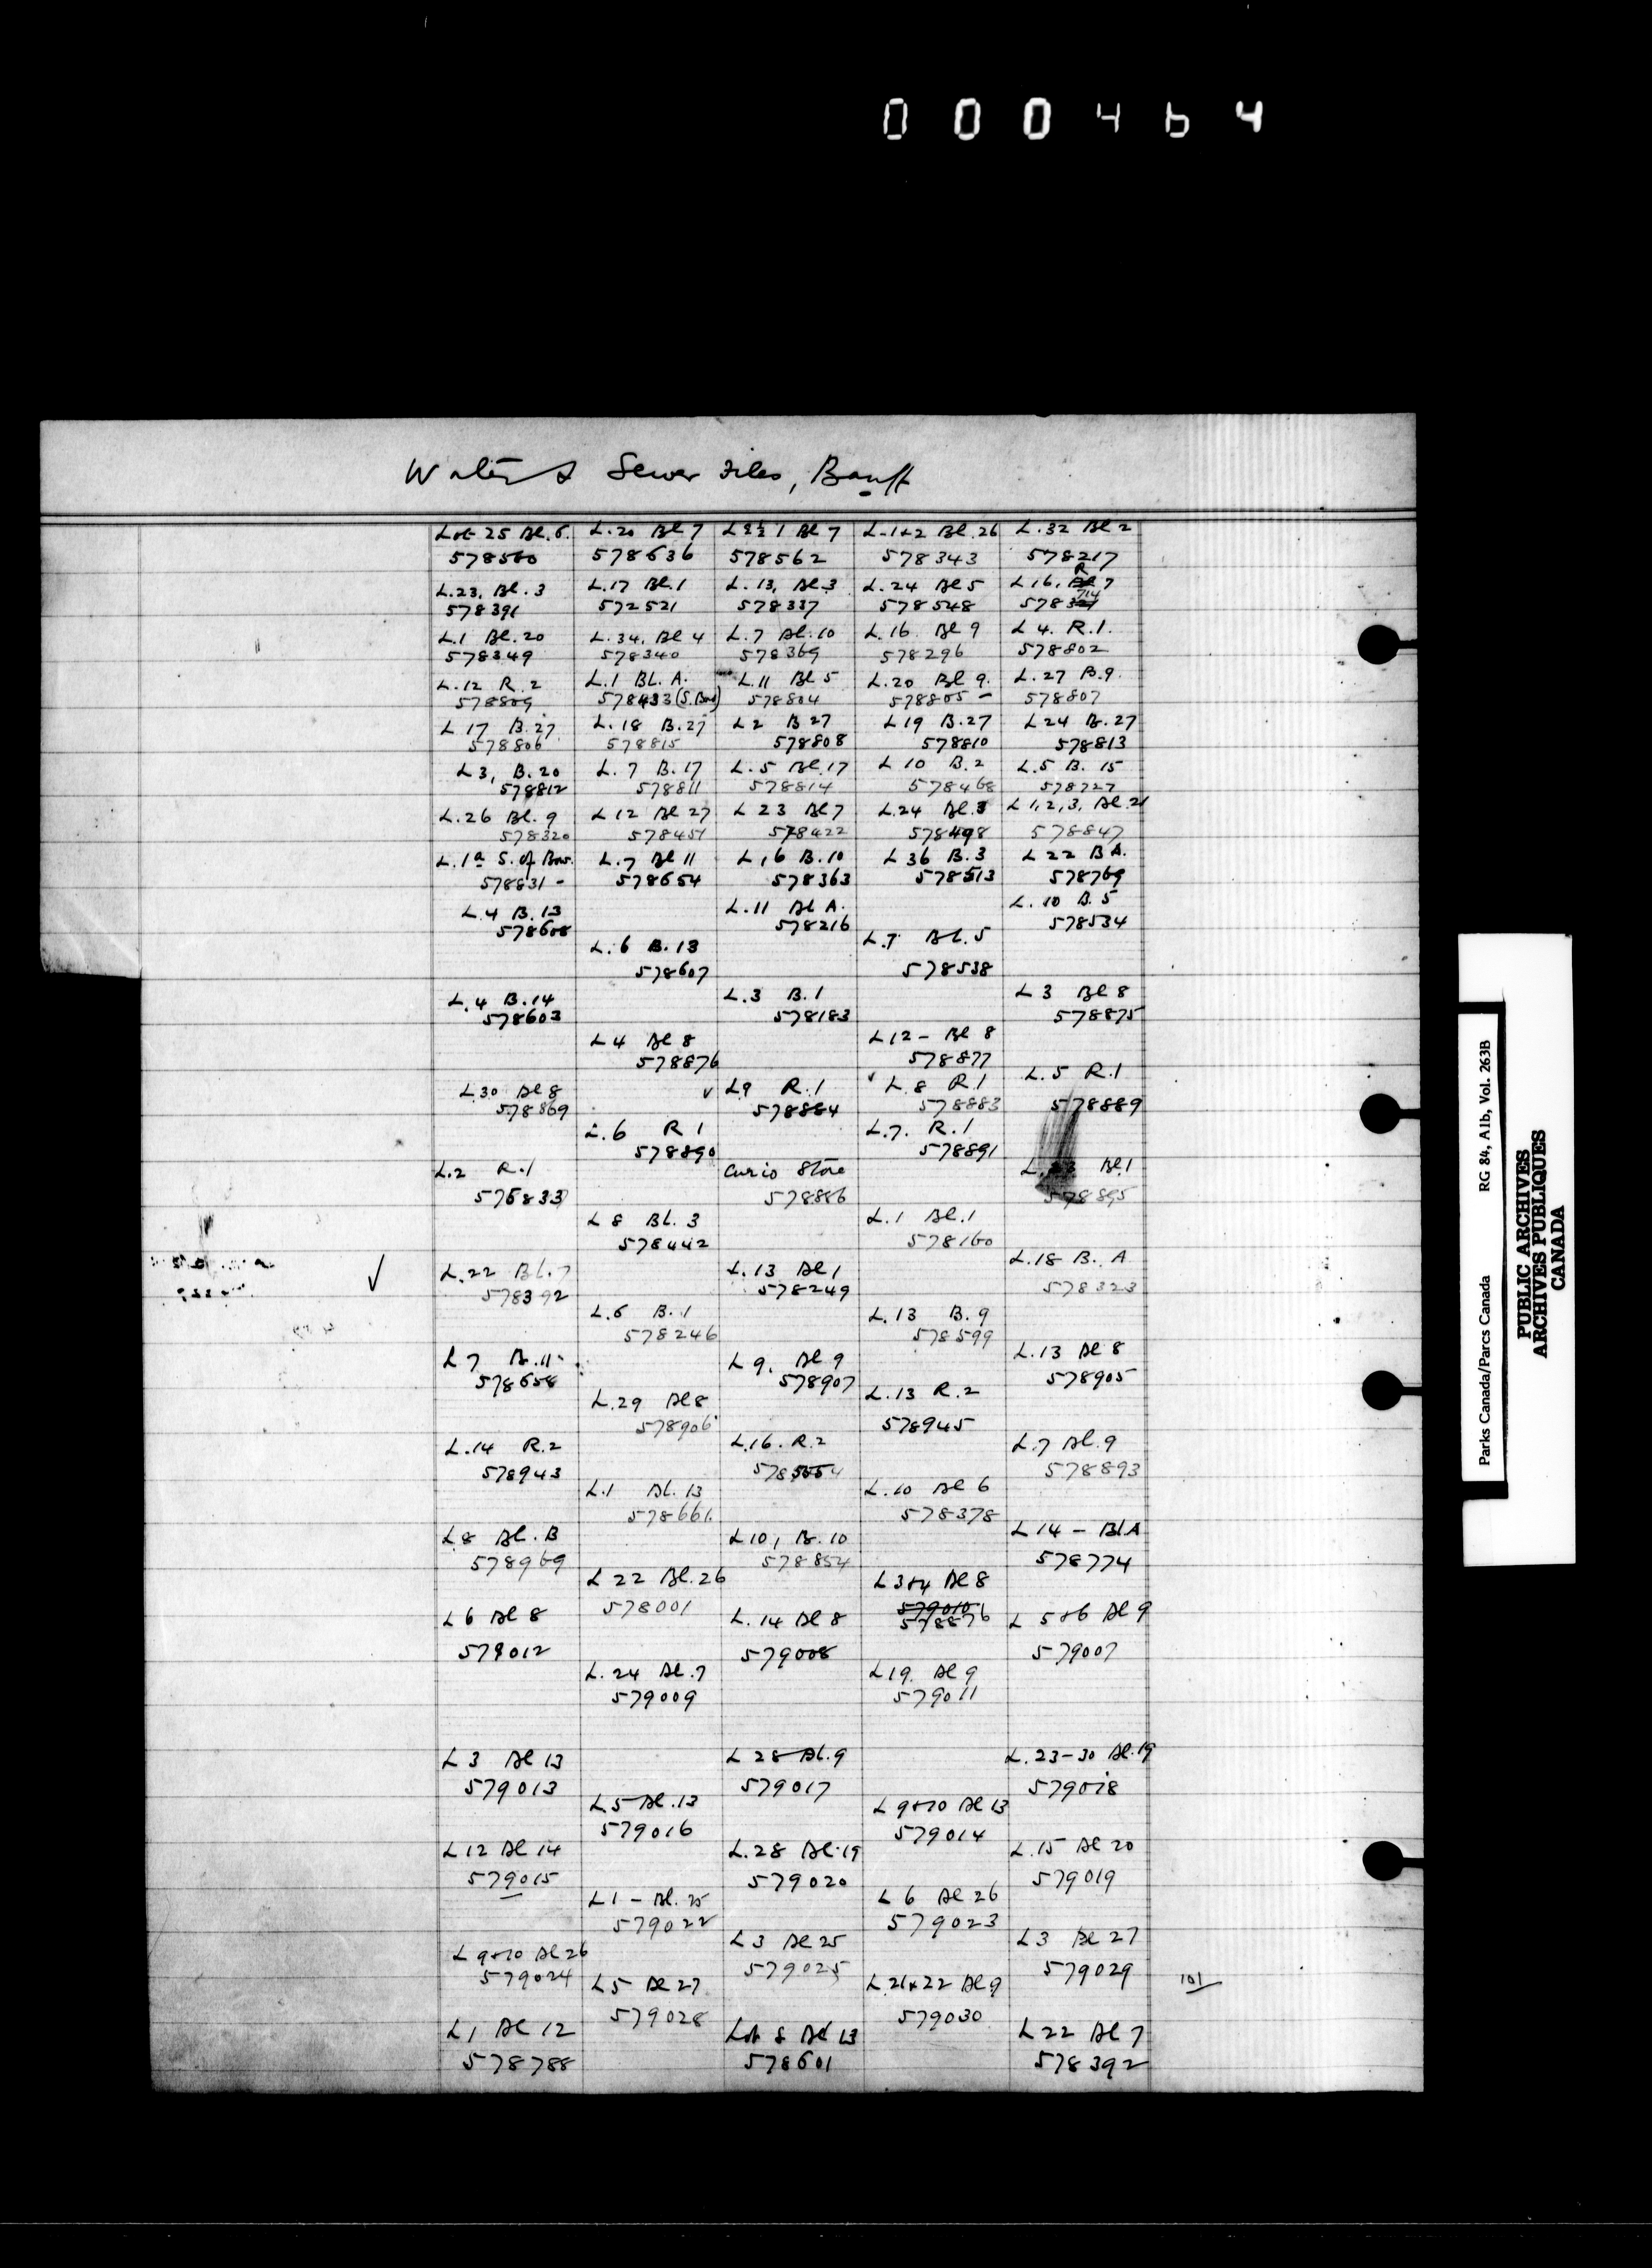 000464
Water & Sewer Files, Banff
Lot 25 Bl. 6. L. 20 Bl 7 L E½ 1 Bl 7 L. 1+2 Bl. 26 L. 32 Bl 2
578560 578636 578562 578343 578217
L. 23, Bl. 3 L. 17 Bl. 1 L. 13, Bl. 3 L. 24 Bl 5 L 16, R 7
578391 572521 578337 578548 578714
L. 1 Bl. 20 L. 34, Bl 4 L. 7 Bl. 10 L. 16 Bl 9 L 4. R. 1.
578349 578340 578369 578296 578802
L. 12 R. 2 L. 1 BL. A. L. 11 Bl 5 L. 20 Bl 9. L. 27 B. 9.
578809 578433 (S. Bow) 578804 578805 - 578807
L 17 B. 27 L. 18 B. 27 L 2 B 27 L 19 B. 27 L 24 B. 27
578806 578815 578808 578810 578813
L 3, B. 20 L. 7 B. 17 L. 5 Bl. 17 L 10 B. 2 L. 5 B. 15
578812 578811 578814 578468 578727
L. 26 Bl. 9 L 12 Bl 27 L 23 Bl 7 L. 24 Bl. 3 L 1, 2, 3, Bl. 21
578320 578451 578422 578498 578847
L. 1a S. of Bow. L. 7 Bl 11 L, 6 B. 10 L 36 B. 3 L 22 B A.
578831 - 578654 578363 578513 578769
L. 4 B. 13 L. 11 Bl A. L. 10 B. 5
578608 578216 578534
L. 6 B. 13 L. 7 Bl. 5
578607 578538
L. 4 B. 14 L. 3 B. 1 L 3 Bl 8
578603 578183 578875
L 4 Bl 8 L 12 - Bl 8
578876 578877
L. 30 Bl 8 ✓ L9 R. 1 ✓ L. 8 R. 1 L. 5 R. 1
578869 578884 578883 578889
L. 6 R 1 L. 7. R. 1
578890 578891
L. 2 R. 1 Curio Store L. Bl. 1
578833 578886 578895
L 8 Bl. 3 L. 1 Bl. 1
578442 578160
✓ L. 22 Bl. 7 L. 13 Bl 1 L. 18 B. A
578392 578249 578323
L. 6 B. 1 L. 13 B. 9
578246 578599
L 7 B. 11 L 9, Bl 9 L. 13 Bl 8
578654 578907 578905
L. 29 Bl 8 L. 13 R. 2
578906 578945
L. 14 R. 2 L. 16. R. 2 L. 7 Bl. 9
578943 578893
L. 1 Bl. 13 L. 10 Bl 6
578661. 578378
L 8 Bl. B L 10, B. 10 L 14 - Bl. A
578969 578854 578774
L 22 Bl. 26 L 3+4 Bl 8
578001 579010 578876
L 6 Bl 8 L. 14 Bl 8 L 5+6 Bl 9
579012 579008 579007
L. 24 Bl. 7 L 19 Bl 9
579009 579011
L 3 Bl 13 L 28 Bl. 9 L. 23-30 Bl. 19
579013 579017 579018
L 5 Bl. 13 L 9+10 Bl 13
579016 579014
L 12 Bl 14 L. 28 Bl. 19 L. 15 Bl 20
579015 579020 579019
L 1 - Bl. 25 L 6 Bl 26
579022 579023
L 9+10 Bl 26 L 3 Bl 25 L 3 Bl 27
579024 579025 579029
L 5 Bl 27 L. 21+22 Bl. 9 101
579028 579030
L 1 Bl 12 Lot 8 Bl 13 L 22 Bl 7
578788 578601 578392
Parks Canada/Parcs Canada RG 84, Alb, Vol. 263B
PUBLIC ARCHIVES
ARCHIVES PUBLIQUES
CANADA